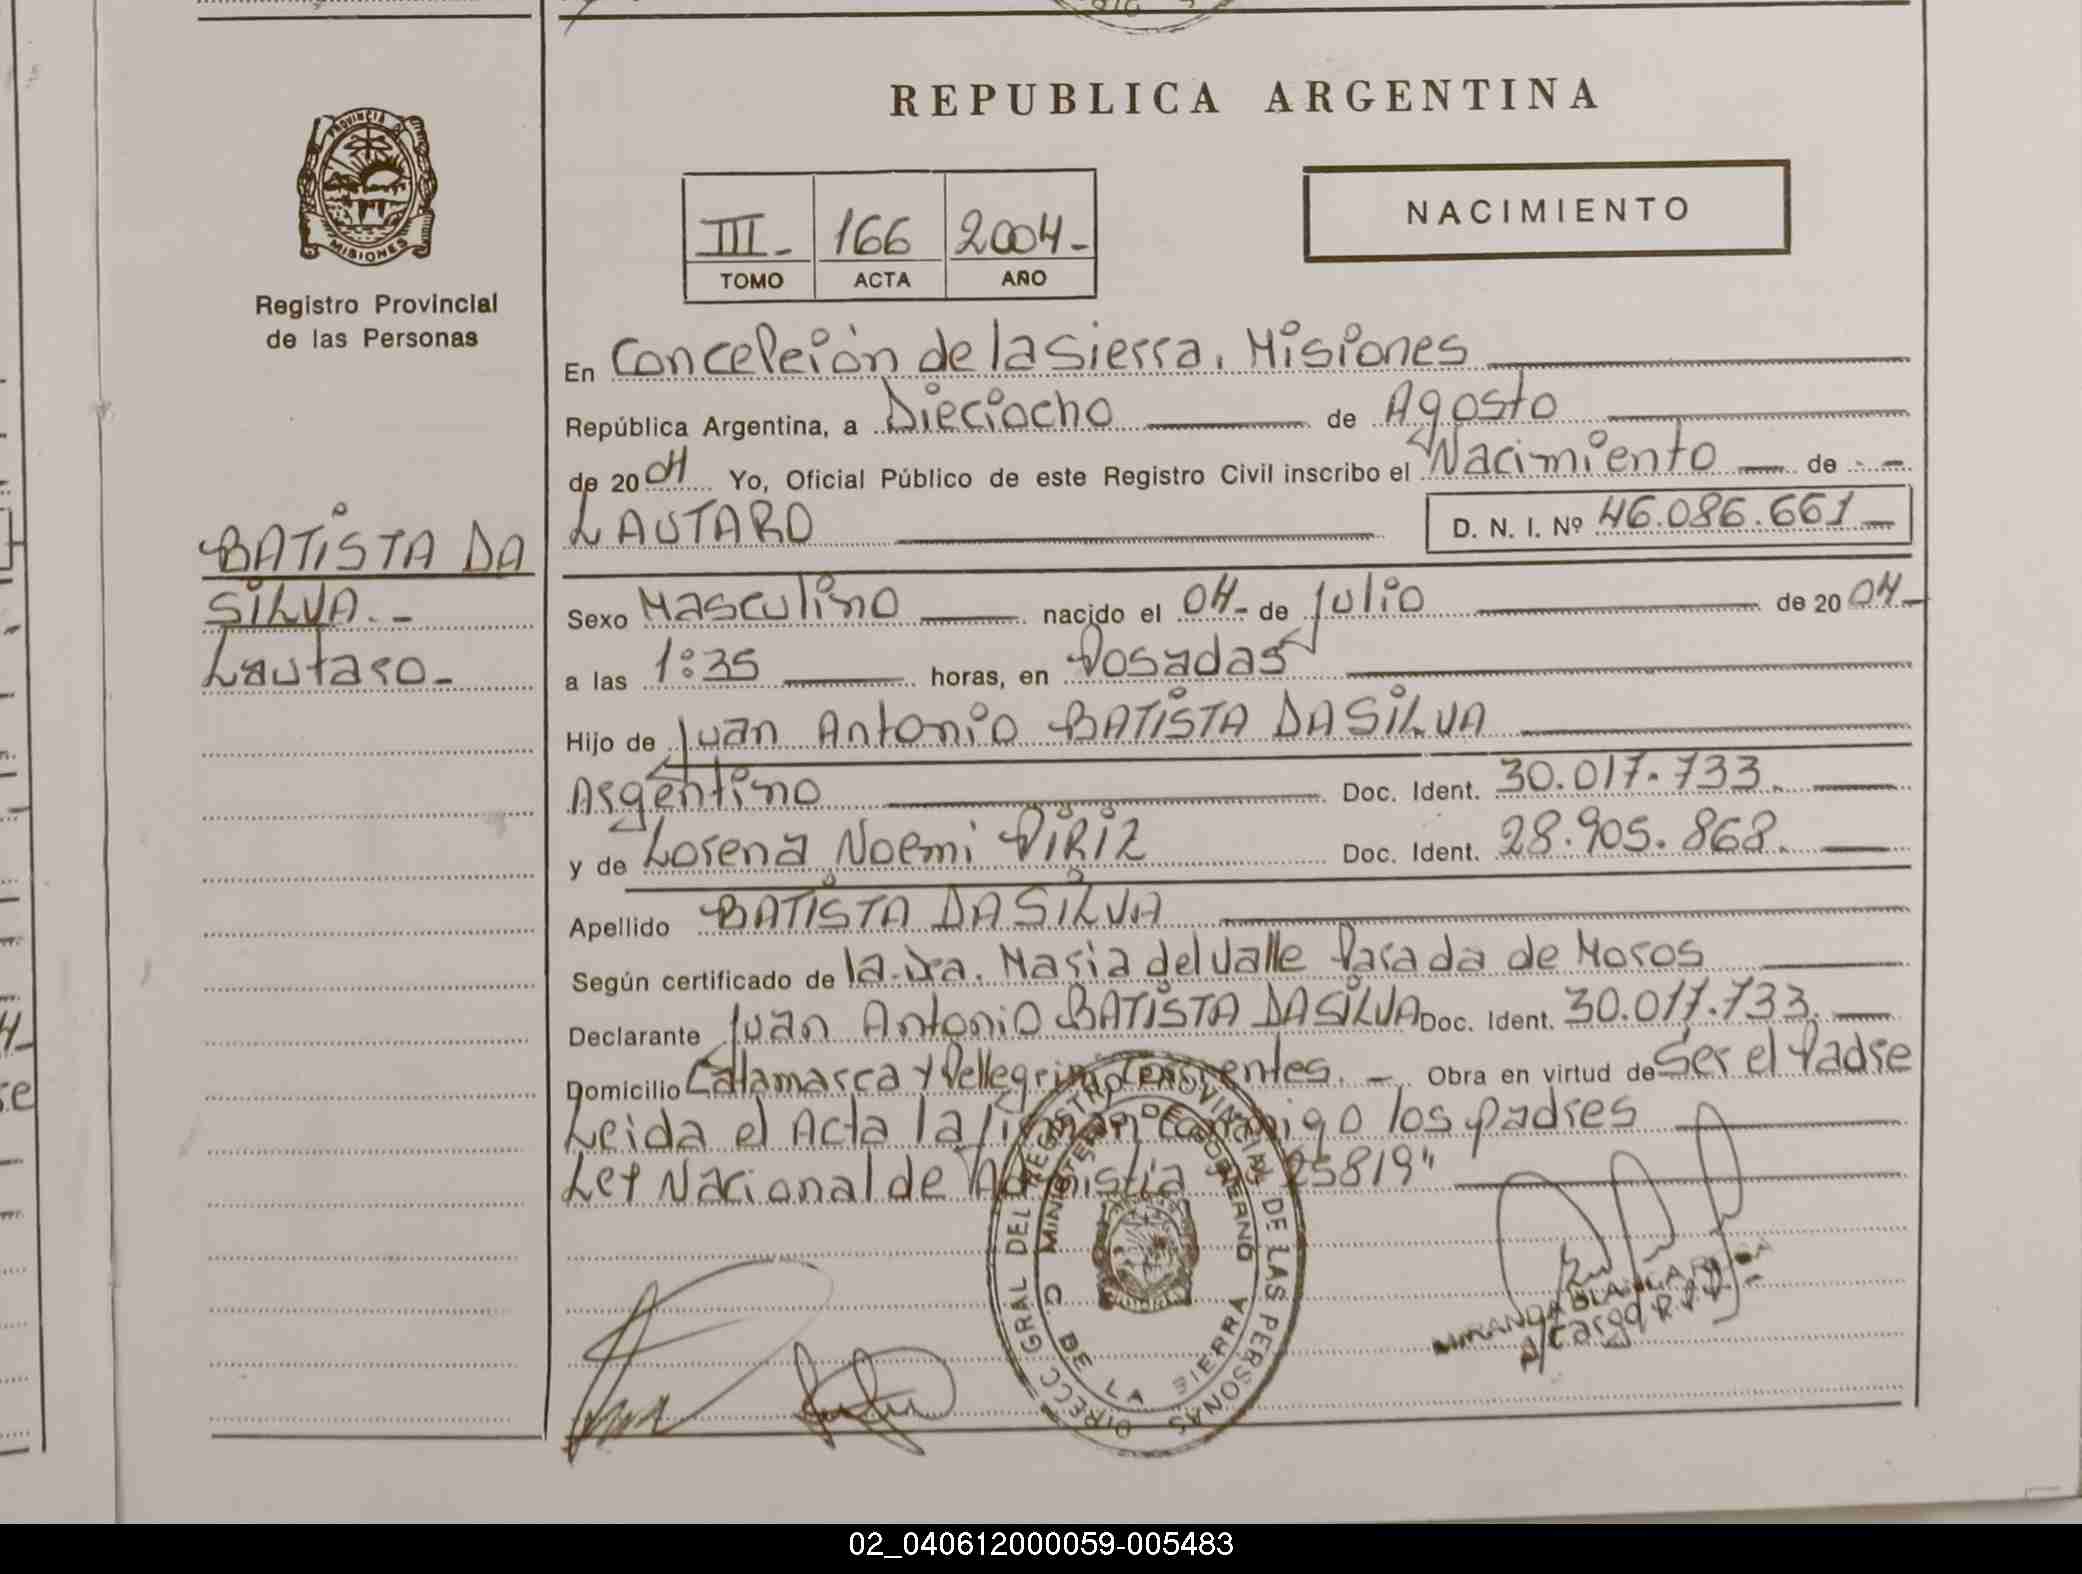 REPUBLICA ARGENTINA
PROVINCIA DE
MISIONES
Registro Provincial
de las Personas
III- 166 2004-
TOMO ACTA AÑO
NACIMIENTO
En Concepción de la Sierra, Misiones
República Argentina, a Dieciocho de Agosto
de 2004 Yo, Oficial Público de este Registro Civil inscribo el Nacimiento de - -
LAUTARO D. N. I. Nº 46.086.661
BATISTA DA
SILVA.-
Lautaro-
Sexo Masculino nacido el 04- de Julio de 2004-
a las 1:35 horas, en Posadas
Hijo de Juan Antonio BATISTA DA SILVA
Argentino Doc. Ident. 30.017.733.
y de Lorena Noemi PIRIZ Doc. Ident. 28.905.868.
Apellido BATISTA DA SILVA
Según certificado de la Dra. Maria del Valle Parada de Moros
Declarante Juan Antonio BATISTA DA SILVA Doc. Ident. 30.017.733.
Domicilio Catamarca y Pellegrini Corrientes. - Obra en virtud de Ser el Padre
Leida el Acta la firman conmigo los padres
Ley Nacional de Amnistia 25819"
DIRECC GRAL DEL REGISTRO PROVINCIAL DE LAS PERSONAS
MINISTERIO DE GOBIERNO
C DE LA SIERRA
A/Cargo R.
02_040612000059-005483